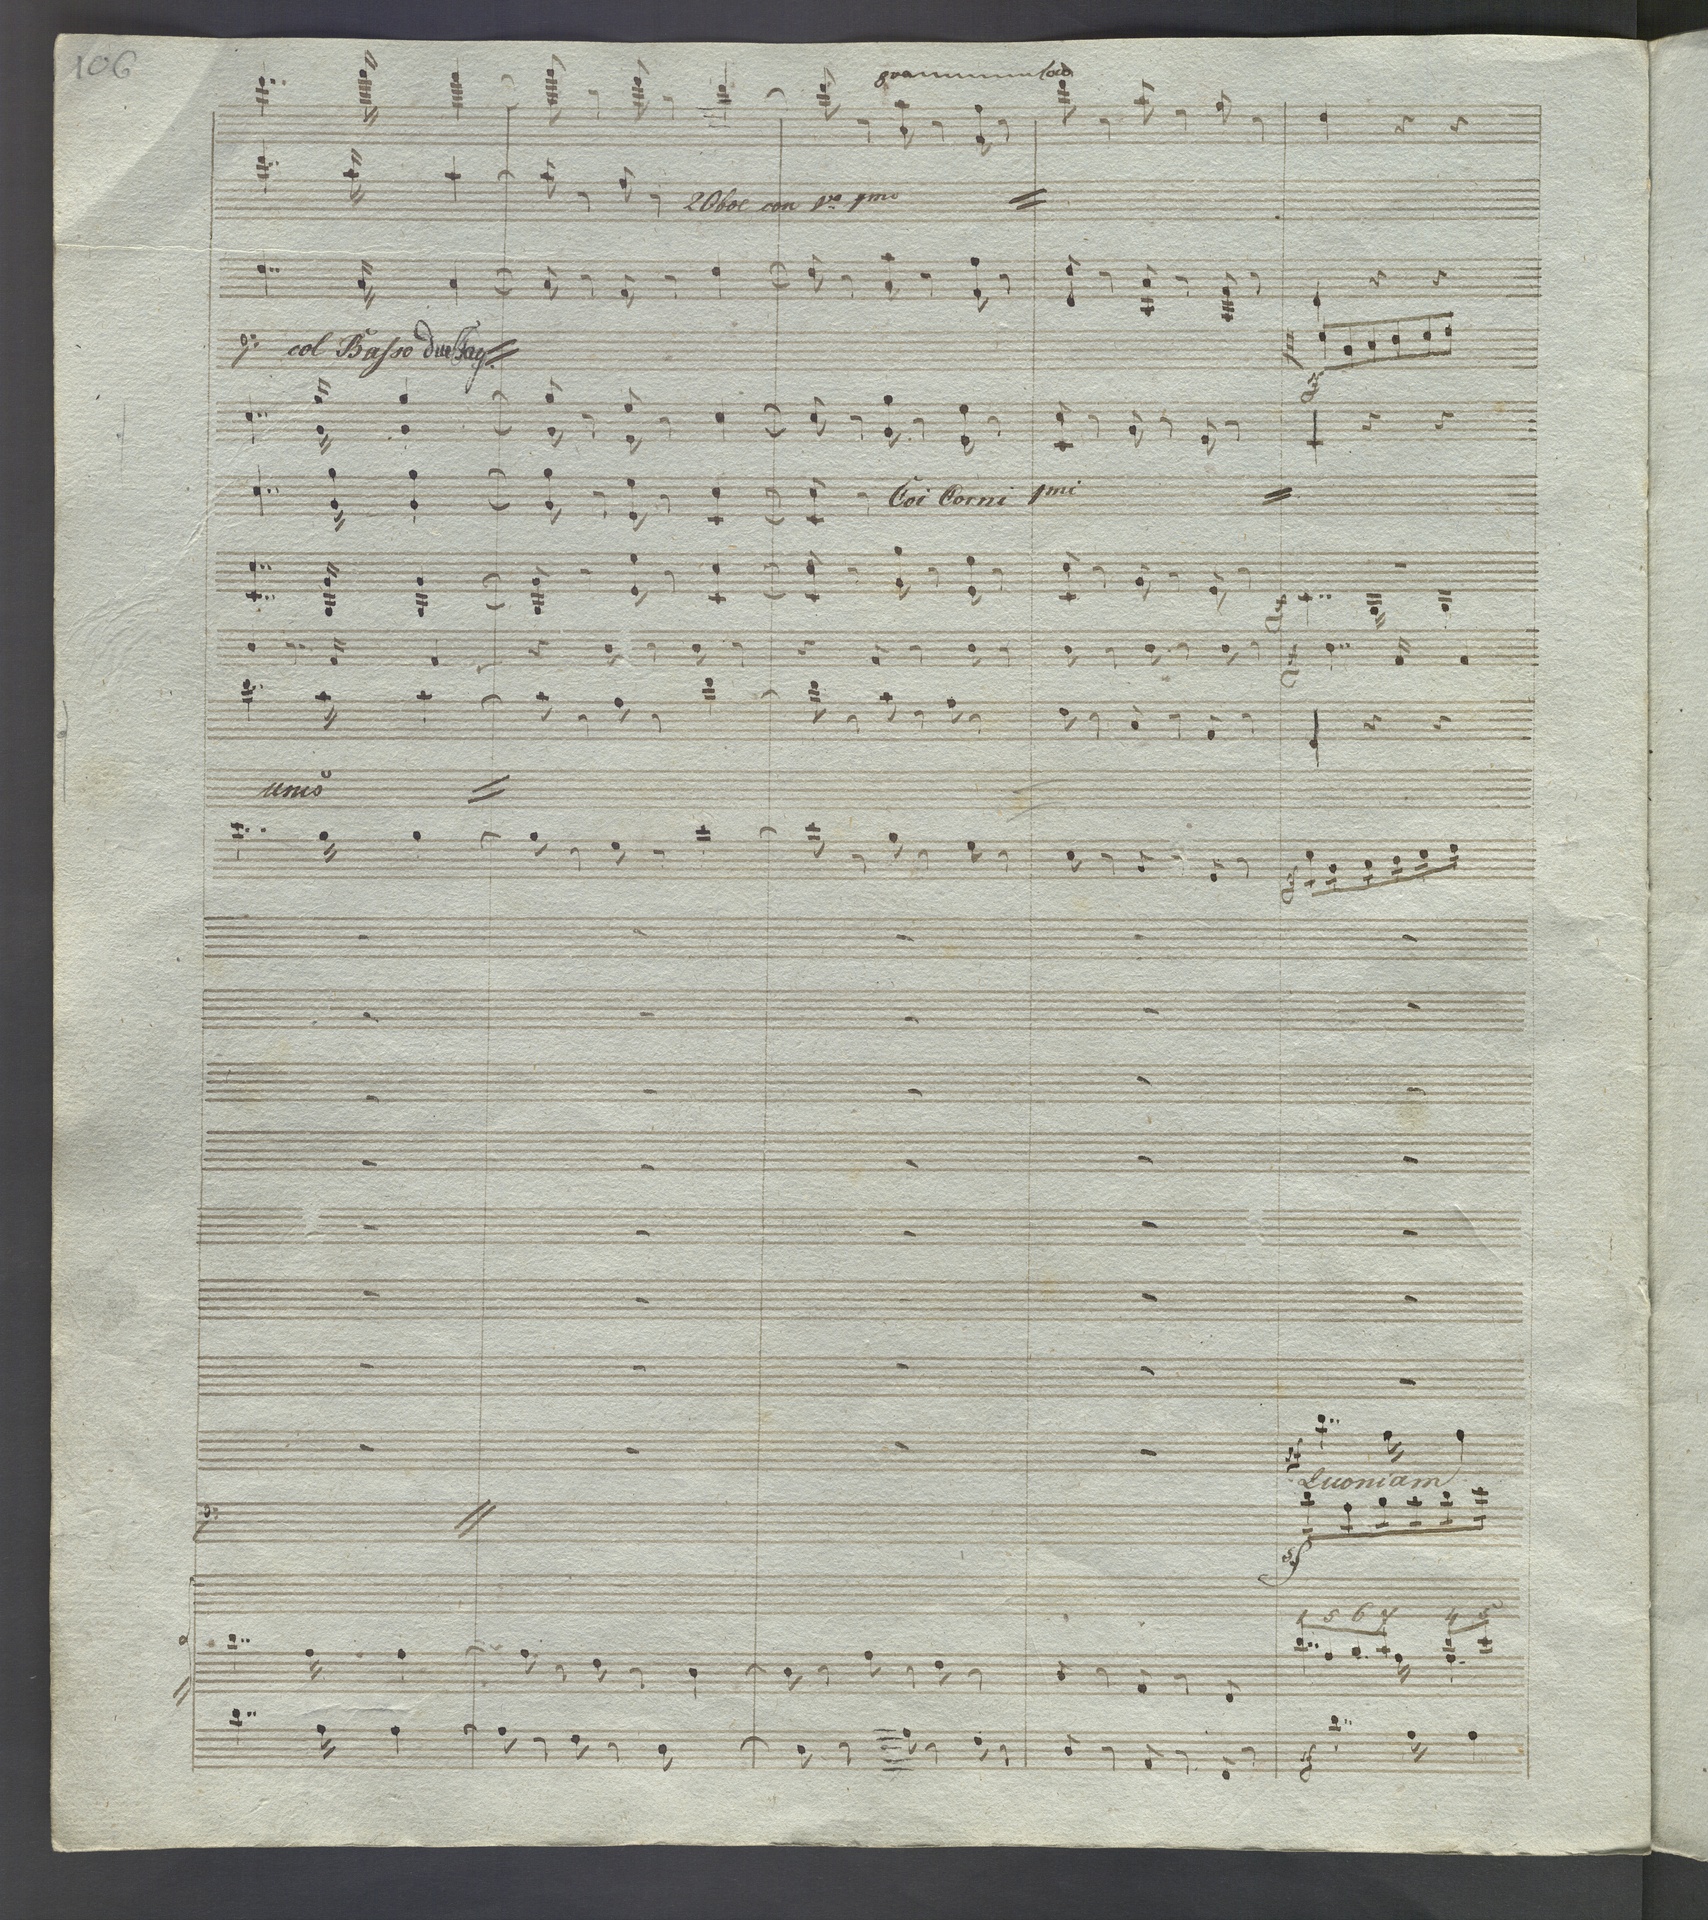 106
8va loco
2 Oboe con Vno 1mo
col Basso due Fag.
Coi Corni 1mi
unis
Quoniam
sf
4 5 6 7 4 5